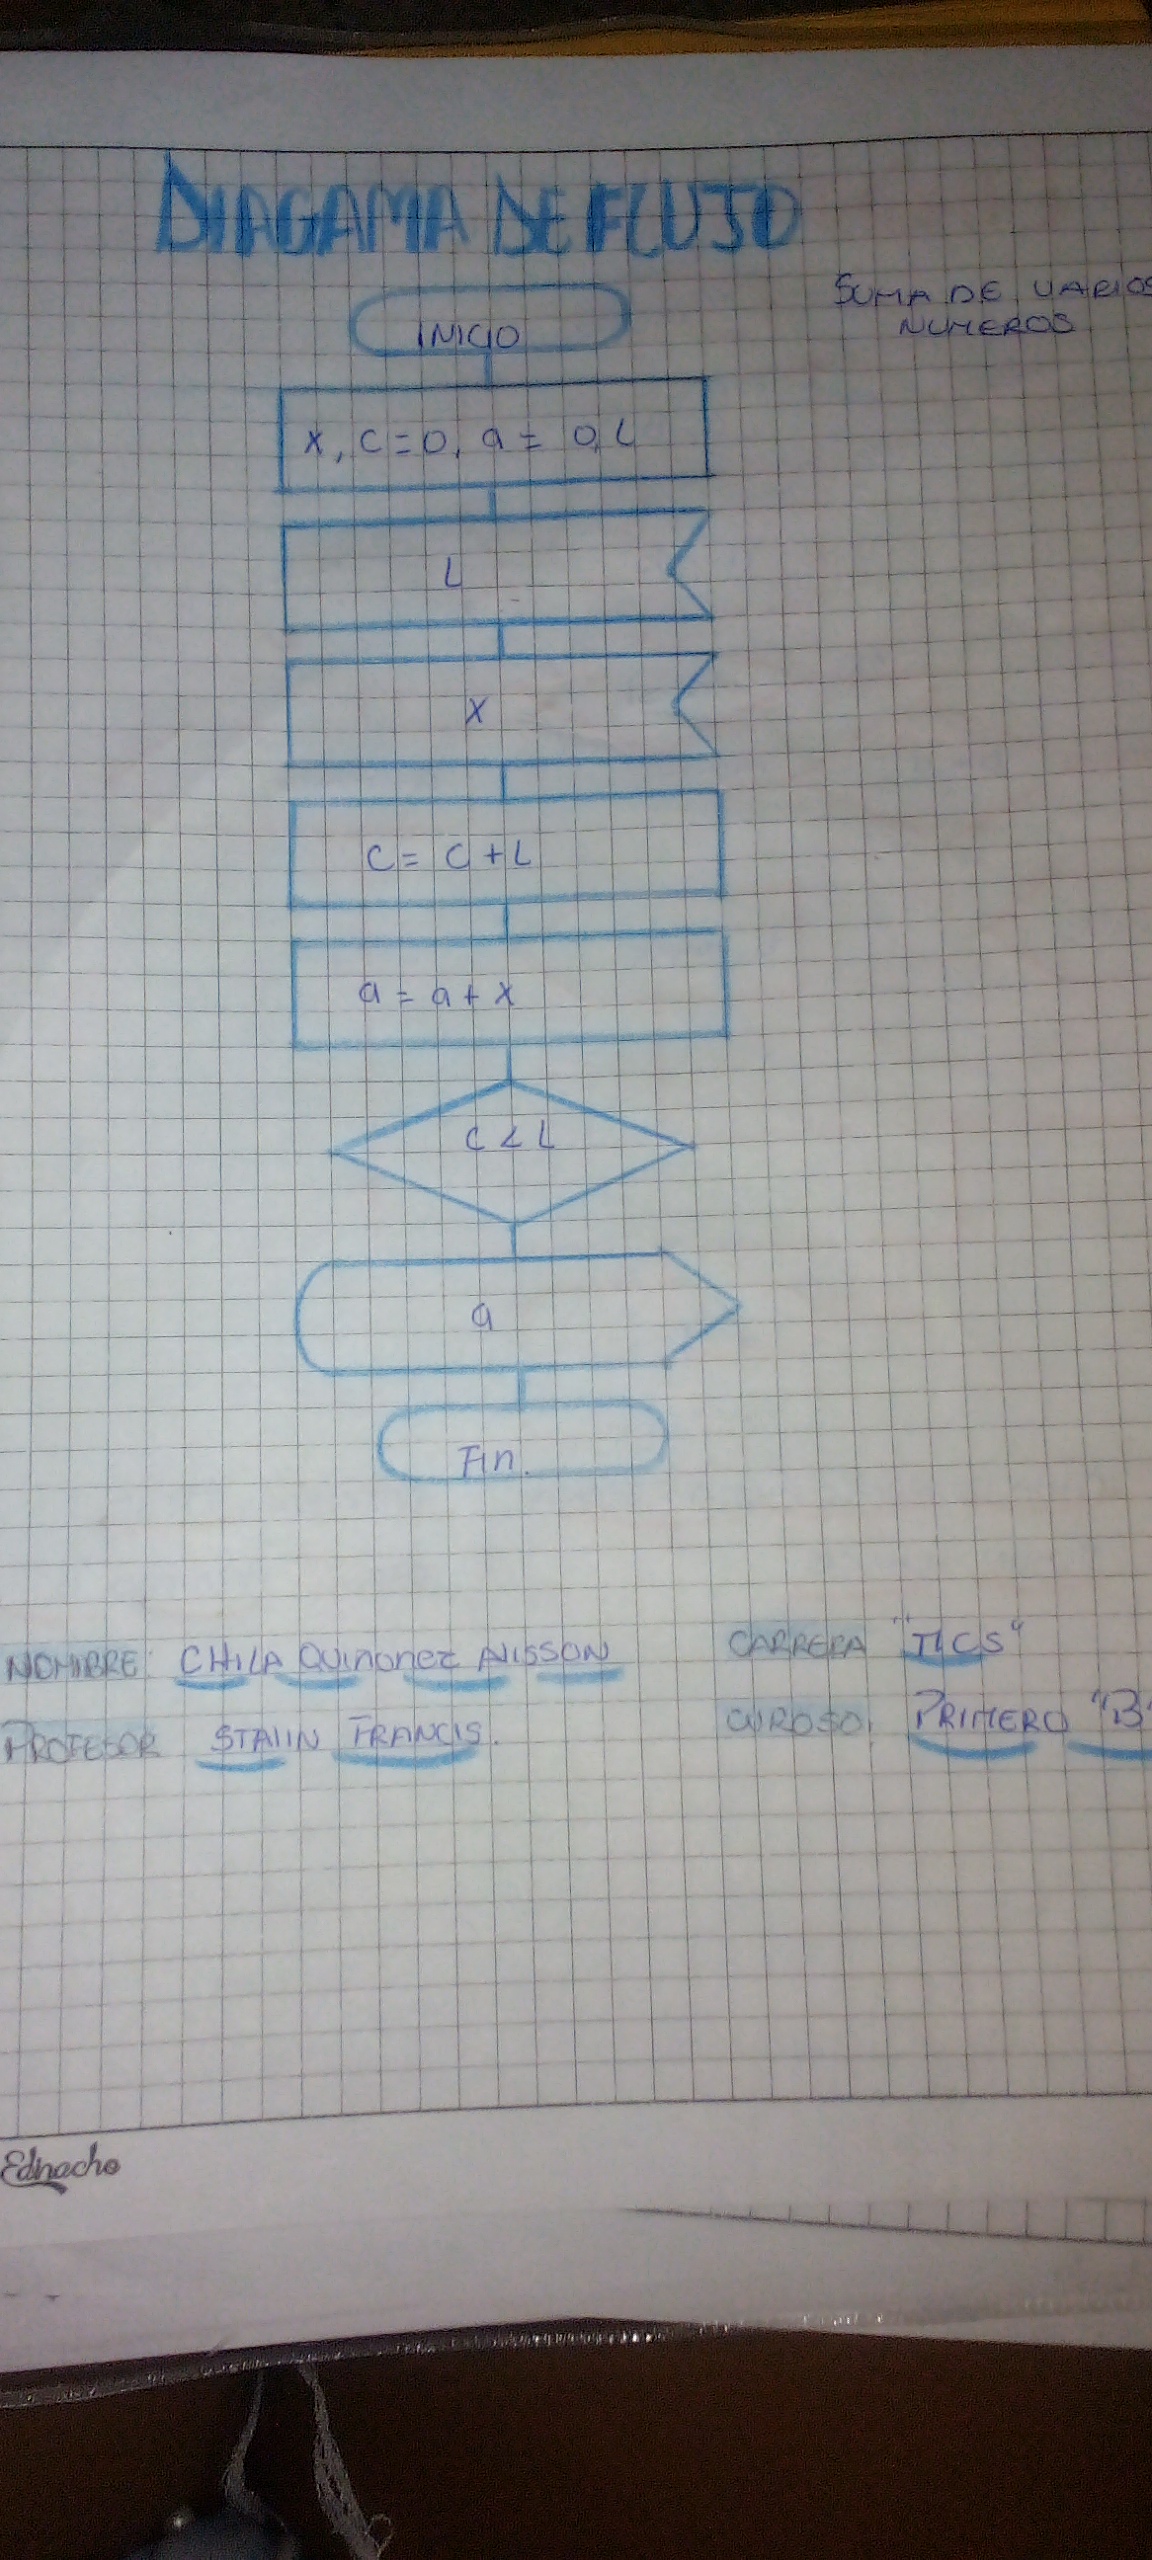 DIAGAMA DE FLUJO
SUMA DE VARIOS
NUMEROS
INICIO
x, c=0, a= 0, L
L
X
c= c+L
a = a+x
c < L
a
Fin.
NOMBRE CHILA QUINONEZ ALISSON
CARRERA "TICS"
PROFESOR STALIN FRANCIS.
CUROSO, PRIMERO "B"
Edinacho